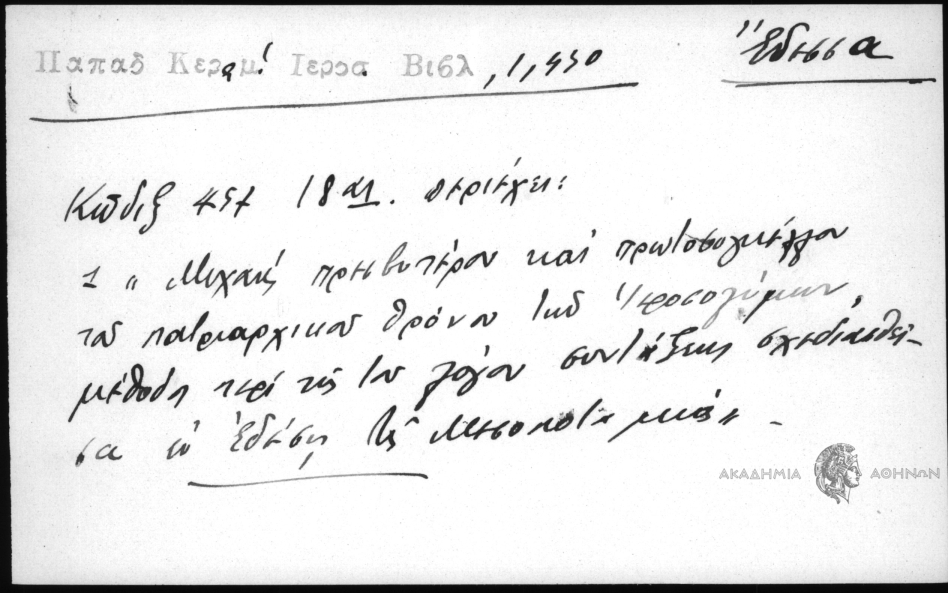 Παπαδ Κεραμ. Ιερσα. Βιβλ, 1, 450
Ἔδεσσα
Κῶδιξ 457 18 αι. περιέχει:
1 " Μιχαὴλ πρεσβυτέρου καὶ πρωτοσυγκέλλου
τοῦ πατριαρχικοῦ θρόνου τῶν Ἱεροσολύμων,
μέθοδος περὶ τῆς τοῦ λόγου συντάξεως σχεδιασθεῖ-
σα ἐν Ἐδέσῃ τῆς Μεσοποταμίας" -
ΑΚΑΔΗΜΙΑ ΑΘΗΝΩΝ